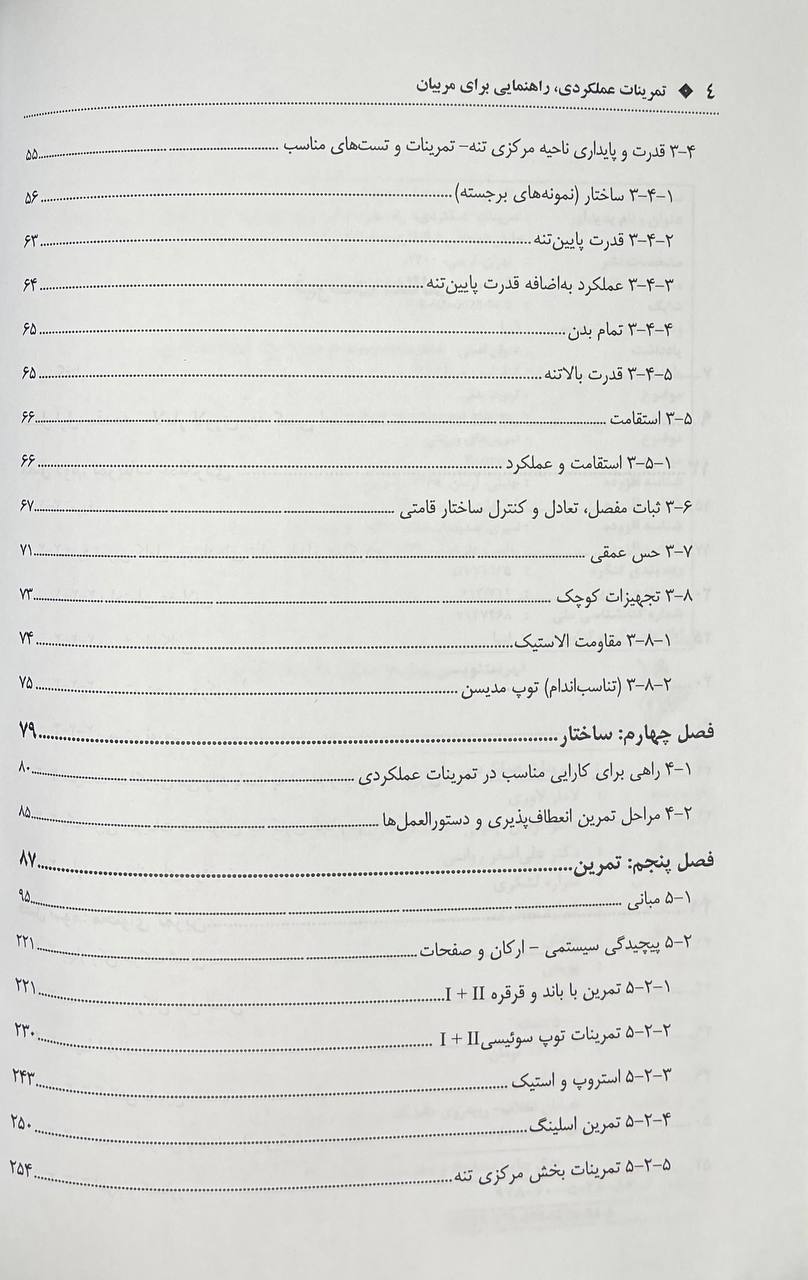 ٤ ◆ تمرینات عملکردی، راهنمایی برای مربیان
۳-۴ قدرت و پایداری ناحیه مرکزی تنه- تمرینات و تست‌های مناسب ۵۵
۳-۴-۱ ساختار (نمونه‌های برجسته) ۵۶
۳-۴-۲ قدرت پایین‌تنه ۶۳
۳-۴-۳ عملکرد به‌اضافه قدرت پایین‌تنه ۶۴
۳-۴-۴ تمام بدن ۶۵
۳-۴-۵ قدرت بالاتنه ۶۵
۳-۵ استقامت ۶۶
۳-۵-۱ استقامت و عملکرد ۶۶
۳-۶ ثبات مفصل، تعادل و کنترل ساختار قامتی ۶۷
۳-۷ حس عمقی ۷۱
۳-۸ تجهیزات کوچک ۷۳
۳-۸-۱ مقاومت الاستیک ۷۴
۳-۸-۲ (تناسب‌اندام) توپ مدیسن ۷۵
فصل چهارم: ساختار ۷۹
۴-۱ راهی برای کارایی مناسب در تمرینات عملکردی ۸۰
۴-۲ مراحل تمرین انعطاف‌پذیری و دستورالعمل‌ها ۸۵
فصل پنجم: تمرین ۸۷
۵-۱ مبانی ۹۵
۵-۲ پیچیدگی سیستمی - ارکان و صفحات ۲۲۱
۵-۲-۱ تمرین با باند و قرقره I + II ۲۲۱
۵-۲-۲ تمرینات توپ سوئیسی I + II ۲۳۰
۵-۲-۳ استروپ و استیک ۲۴۳
۵-۲-۴ تمرین اسلینگ ۲۵۰
۵-۲-۵ تمرینات بخش مرکزی تنه ۲۵۴